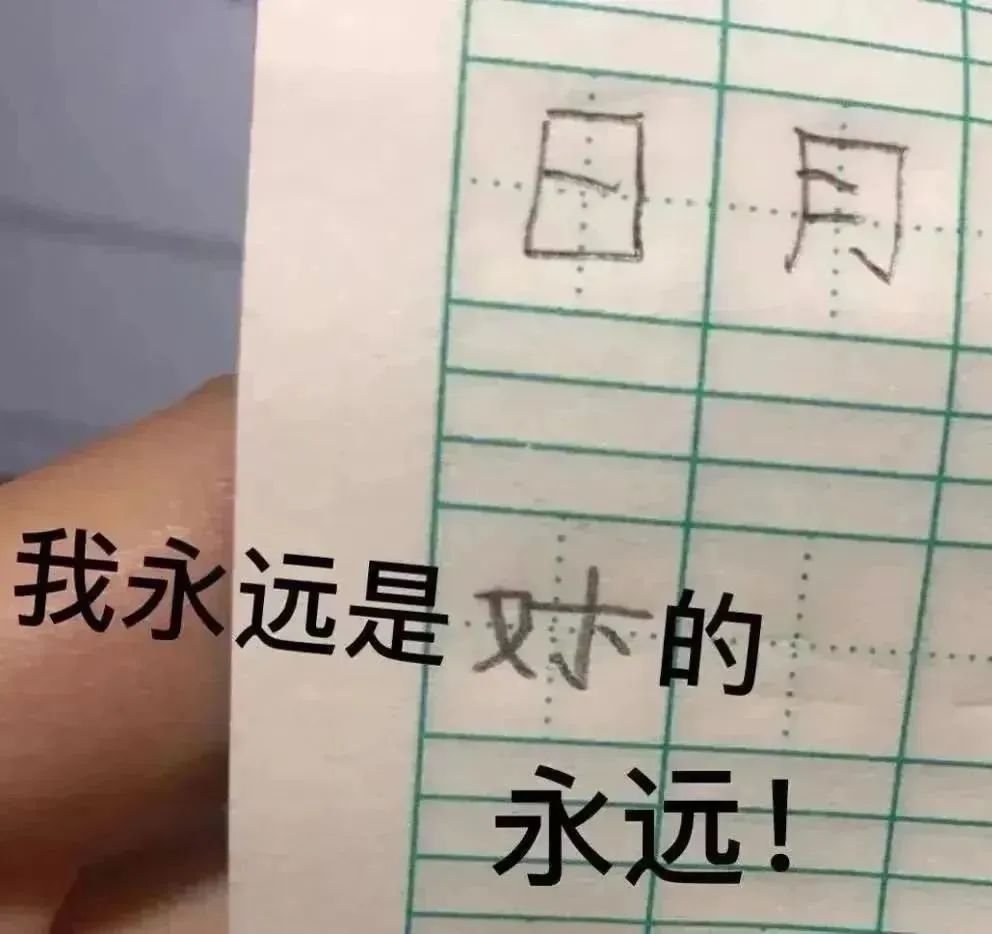 日 月
我永远是 的
永远！